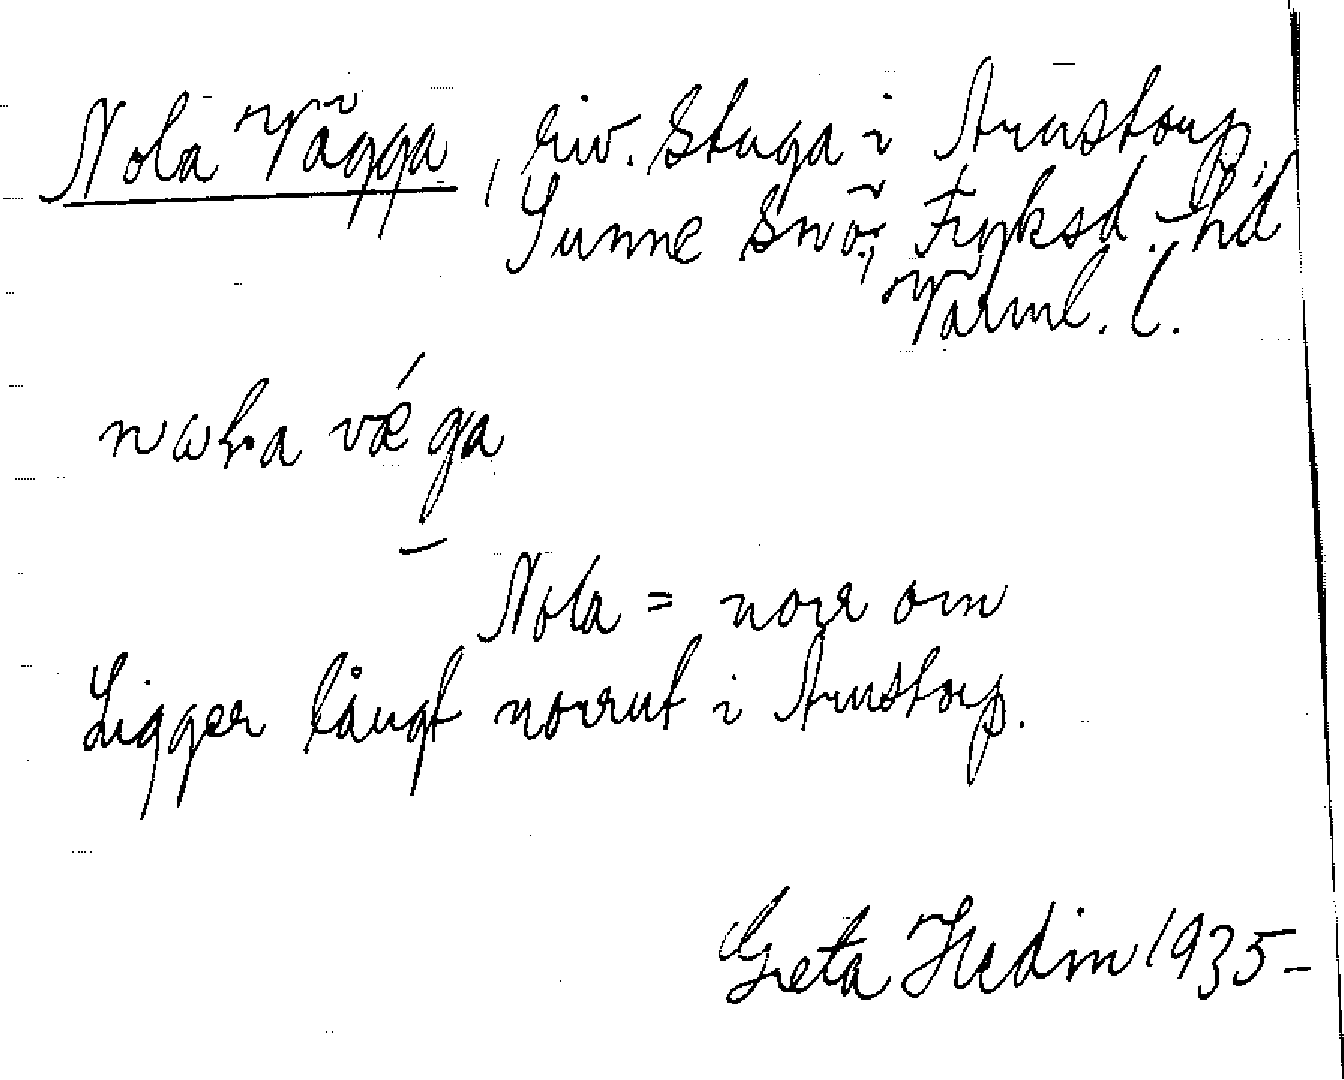 Nola Vägga, riv. Stuga i Arnstorp,
Sunne Snö:, Fryksd.-hd
Värml. l.
nωla vǽga
Nola = norr om
Ligger långt norrut i Arnstorp.
Greta Hedin 1935-